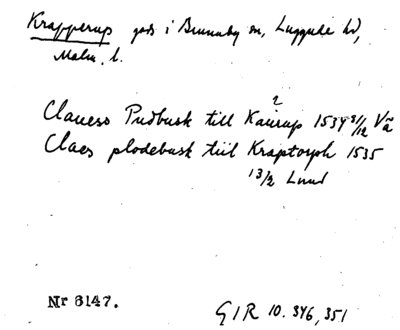 Krapperup gods i Brunnby sn, Luggude hd,
Malm. l.
?
Clauess Pudbusk till Kaurup 1534 31/12 Vä
Claes plodebusk till Kraptorph 1535
13/2 Lund
Nr 6147.
GIR 10. 346, 351